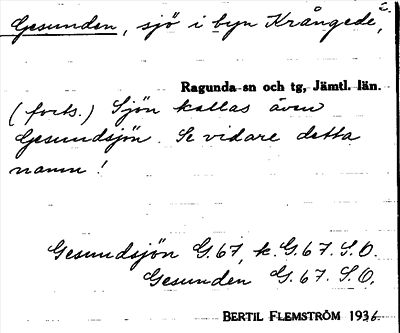 2.
Gesunden, sjö i byn Krångede,
Ragunda sn och tg, Jämtl. län.
(forts.) Sjön kallas även
Gesundsjön. Se vidare detta
namn!
Gesundsjön G.67, k. G.67. S.O.
Gesunden G.67. S.O.
BERTIL FLEMSTRÖM 1936